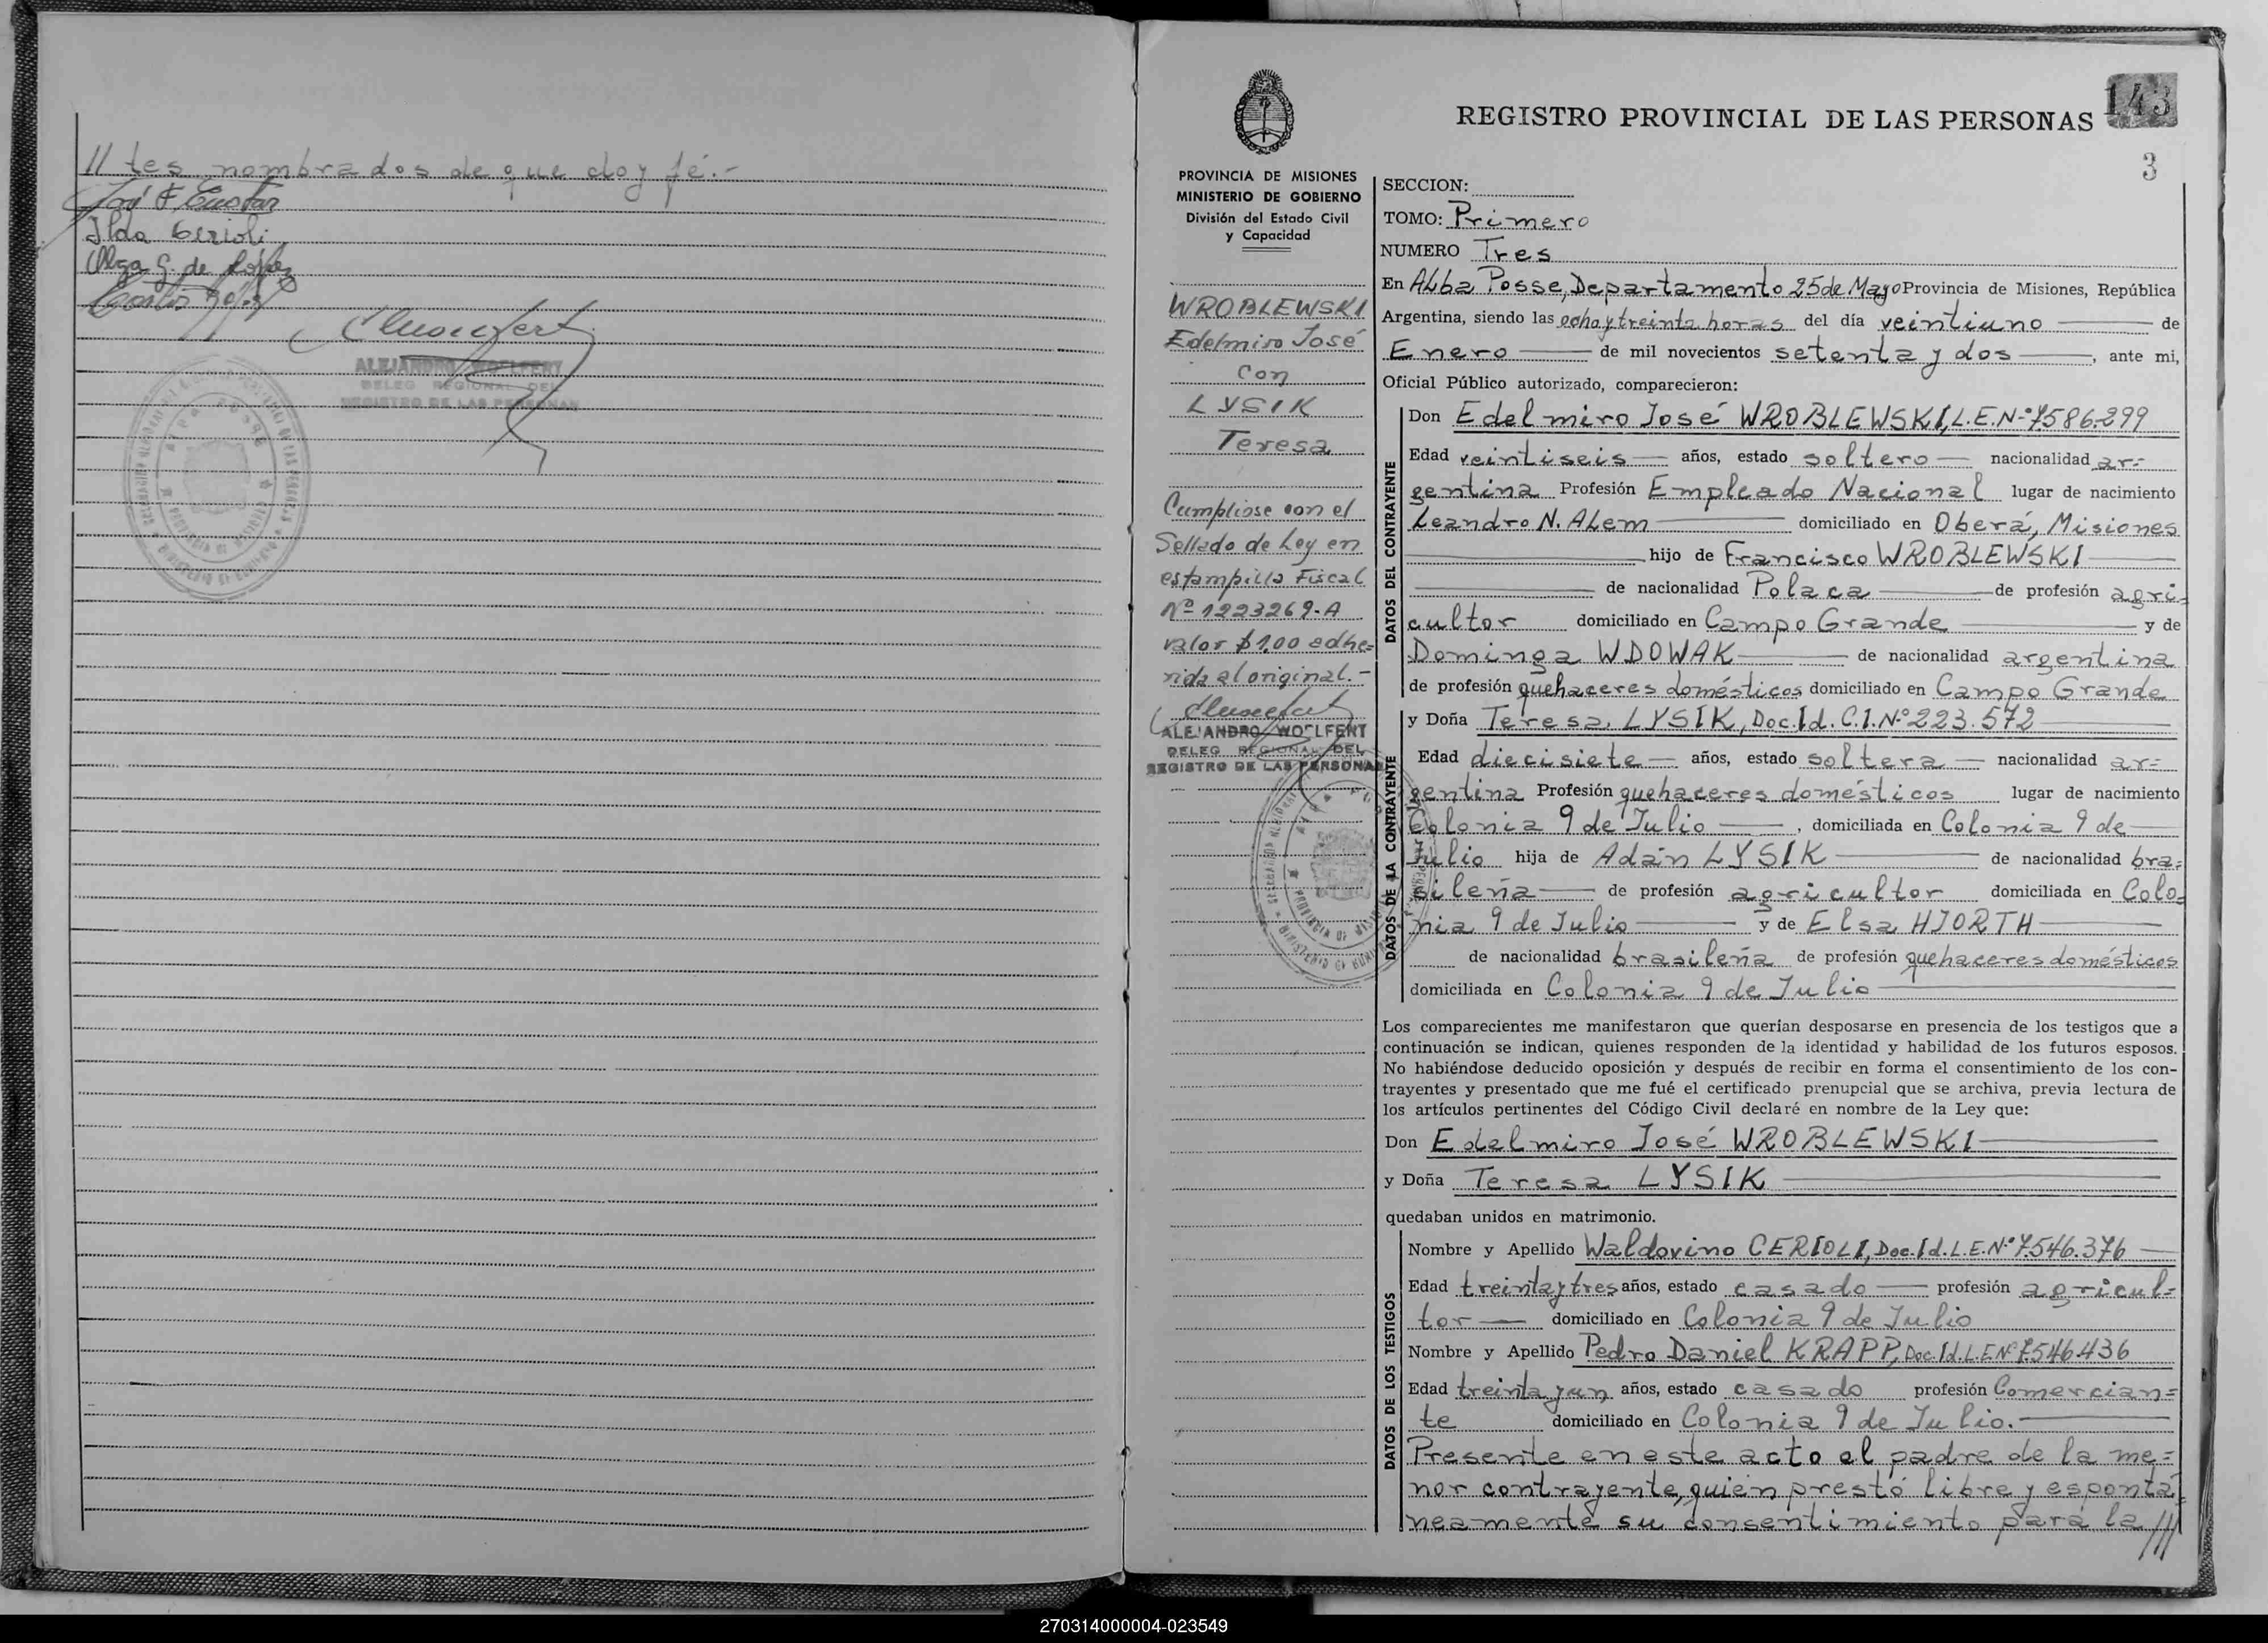 // tes nombrados de que doy fé.-
Ilda Cerioli
Olga G. de López
ALEJANDRO WOELFERT
DELEG REGIONAL DEL
REGISTRO DE LAS PERSONAS
143
REGISTRO PROVINCIAL DE LAS PERSONAS
3
PROVINCIA DE MISIONES
MINISTERIO DE GOBIERNO
División del Estado Civil
y Capacidad
WROBLEWSKI
Edelmiro José
con
LYSIK
Teresa
Cumpliose con el
Sellado de Ley en
estampilla Fiscal
Nº 1223269-A
valor $1,00 adhe=
rida al original.-
ALEJANDRO WOELFERT
DELEG REGIONAL DEL
REGISTRO DE LAS PERSONAS
SECCION:
TOMO: Primero
NUMERO Tres
En Alba Posse, Departamento 25 de Mayo Provincia de Misiones, República
Argentina, siendo las ocho y treinta horas del día veintiuno de
Enero de mil novecientos setenta y dos, ante mi,
Oficial Público autorizado, comparecieron:
DATOS DEL CONTRAYENTE
Don Edelmiro José WROBLEWSKI, L.E.Nº 7.586.299
Edad veintiseis años, estado soltero nacionalidad ar=
gentina Profesión Empleado Nacional lugar de nacimiento
Leandro N. Alem domiciliado en Oberá, Misiones
hijo de Francisco WROBLEWSKI
de nacionalidad Polaca de profesión agri=
cultor domiciliado en Campo Grande y de
Dominga WDOWAK de nacionalidad argentina
de profesión quehaceres domésticos domiciliado en Campo Grande
DATOS DE LA CONTRAYENTE
y Doña Teresa LYSIK, Doc. Id. C.I.Nº 223.572
Edad diecisiete años, estado soltera nacionalidad ar=
gentina Profesión quehaceres domésticos lugar de nacimiento
Colonia 9 de Julio, domiciliada en Colonia 9 de
Julio hija de Adán LYSIK de nacionalidad bra=
sileña de profesión agricultor domiciliada en Colo=
nia 9 de Julio y de Elsa HJORTH
de nacionalidad brasileña de profesión quehaceres domésticos
domiciliada en Colonia 9 de Julio
Los comparecientes me manifestaron que querían desposarse en presencia de los testigos que a
continuación se indican, quienes responden de la identidad y habilidad de los futuros esposos.
No habiéndose deducido oposición y después de recibir en forma el consentimiento de los con-
trayentes y presentado que me fué el certificado prenupcial que se archiva, previa lectura de
los artículos pertinentes del Código Civil declaré en nombre de la Ley que:
Don Edelmiro José WROBLEWSKI
y Doña Teresa LYSIK
quedaban unidos en matrimonio.
DATOS DE LOS TESTIGOS
Nombre y Apellido Waldovino CERIOLI, Doc. Id. L.E.Nº 7.546.376
Edad treinta y tres años, estado casado profesión agricul=
tor domiciliado en Colonia 9 de Julio
Nombre y Apellido Pedro Daniel KRAPP, Doc. Id. L.E Nº 7.546.436
Edad treinta y un años, estado casado profesión Comercian=
te domiciliado en Colonia 9 de Julio.
Presente en este acto el padre de la me=
nor contrayente, quién prestó libre y espontá=
neamente su consentimiento para la ///
270314000004-023549